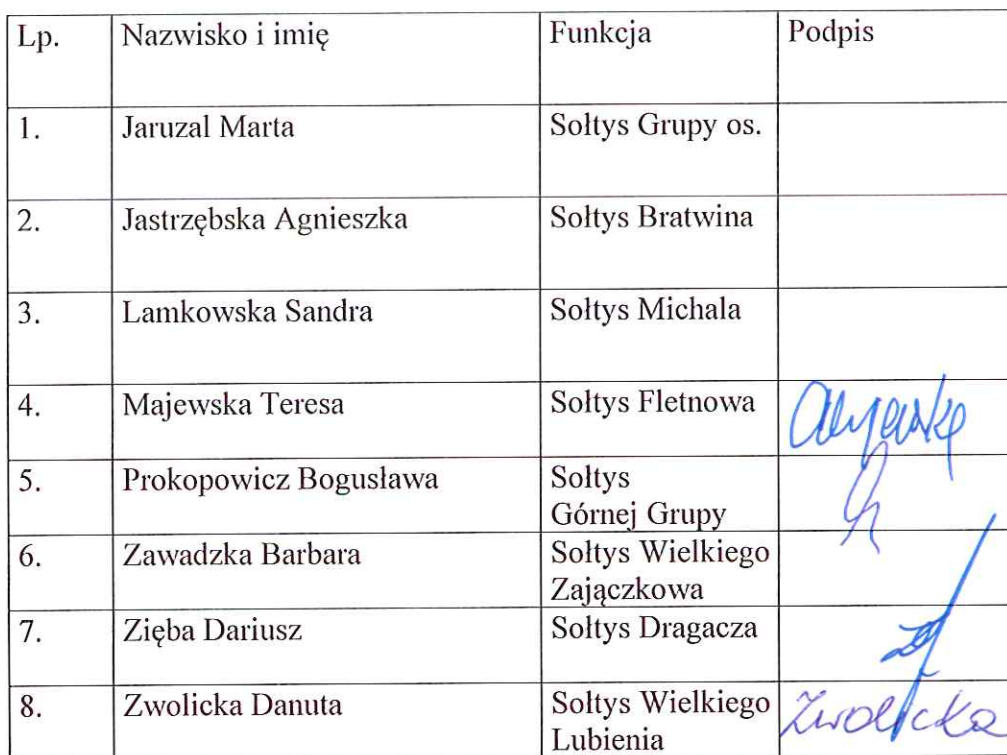 Lp. Nazwisko i imię Funkcja Podpis
1. Jaruzal Marta Sołtys Grupy os.
2. Jastrzębska Agnieszka Sołtys Bratwina
3. Lamkowska Sandra Sołtys Michala
4. Majewska Teresa Sołtys Fletnowa
5. Prokopowicz Bogusława Sołtys
Górnej Grupy
6. Zawadzka Barbara Sołtys Wielkiego
Zajączkowa
7. Zięba Dariusz Sołtys Dragacza
8. Zwolicka Danuta Sołtys Wielkiego Zwolicka
Lubienia